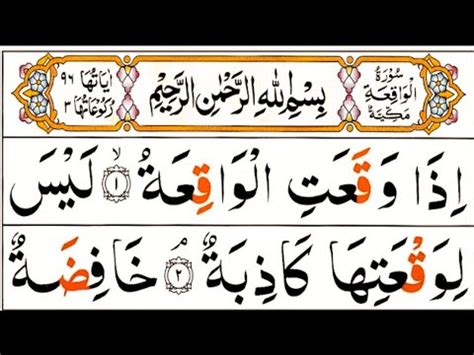 سُوْرَةُ الْوَاقِعَةِ مَكِّيَّةٌ
بِسْمِ اللهِ الرَّحْمٰنِ الرَّحِيْمِ
اٰيَاتُهَا ٩٦ رُكُوْعَاتُهَا ٣
اِذَا وَقَعَتِ الْوَاقِعَةُ ۙ ﴿١﴾ لَيْسَ
لِوَقْعَتِهَا كَاذِبَةٌ ۘ ﴿٢﴾ خَافِضَةٌ